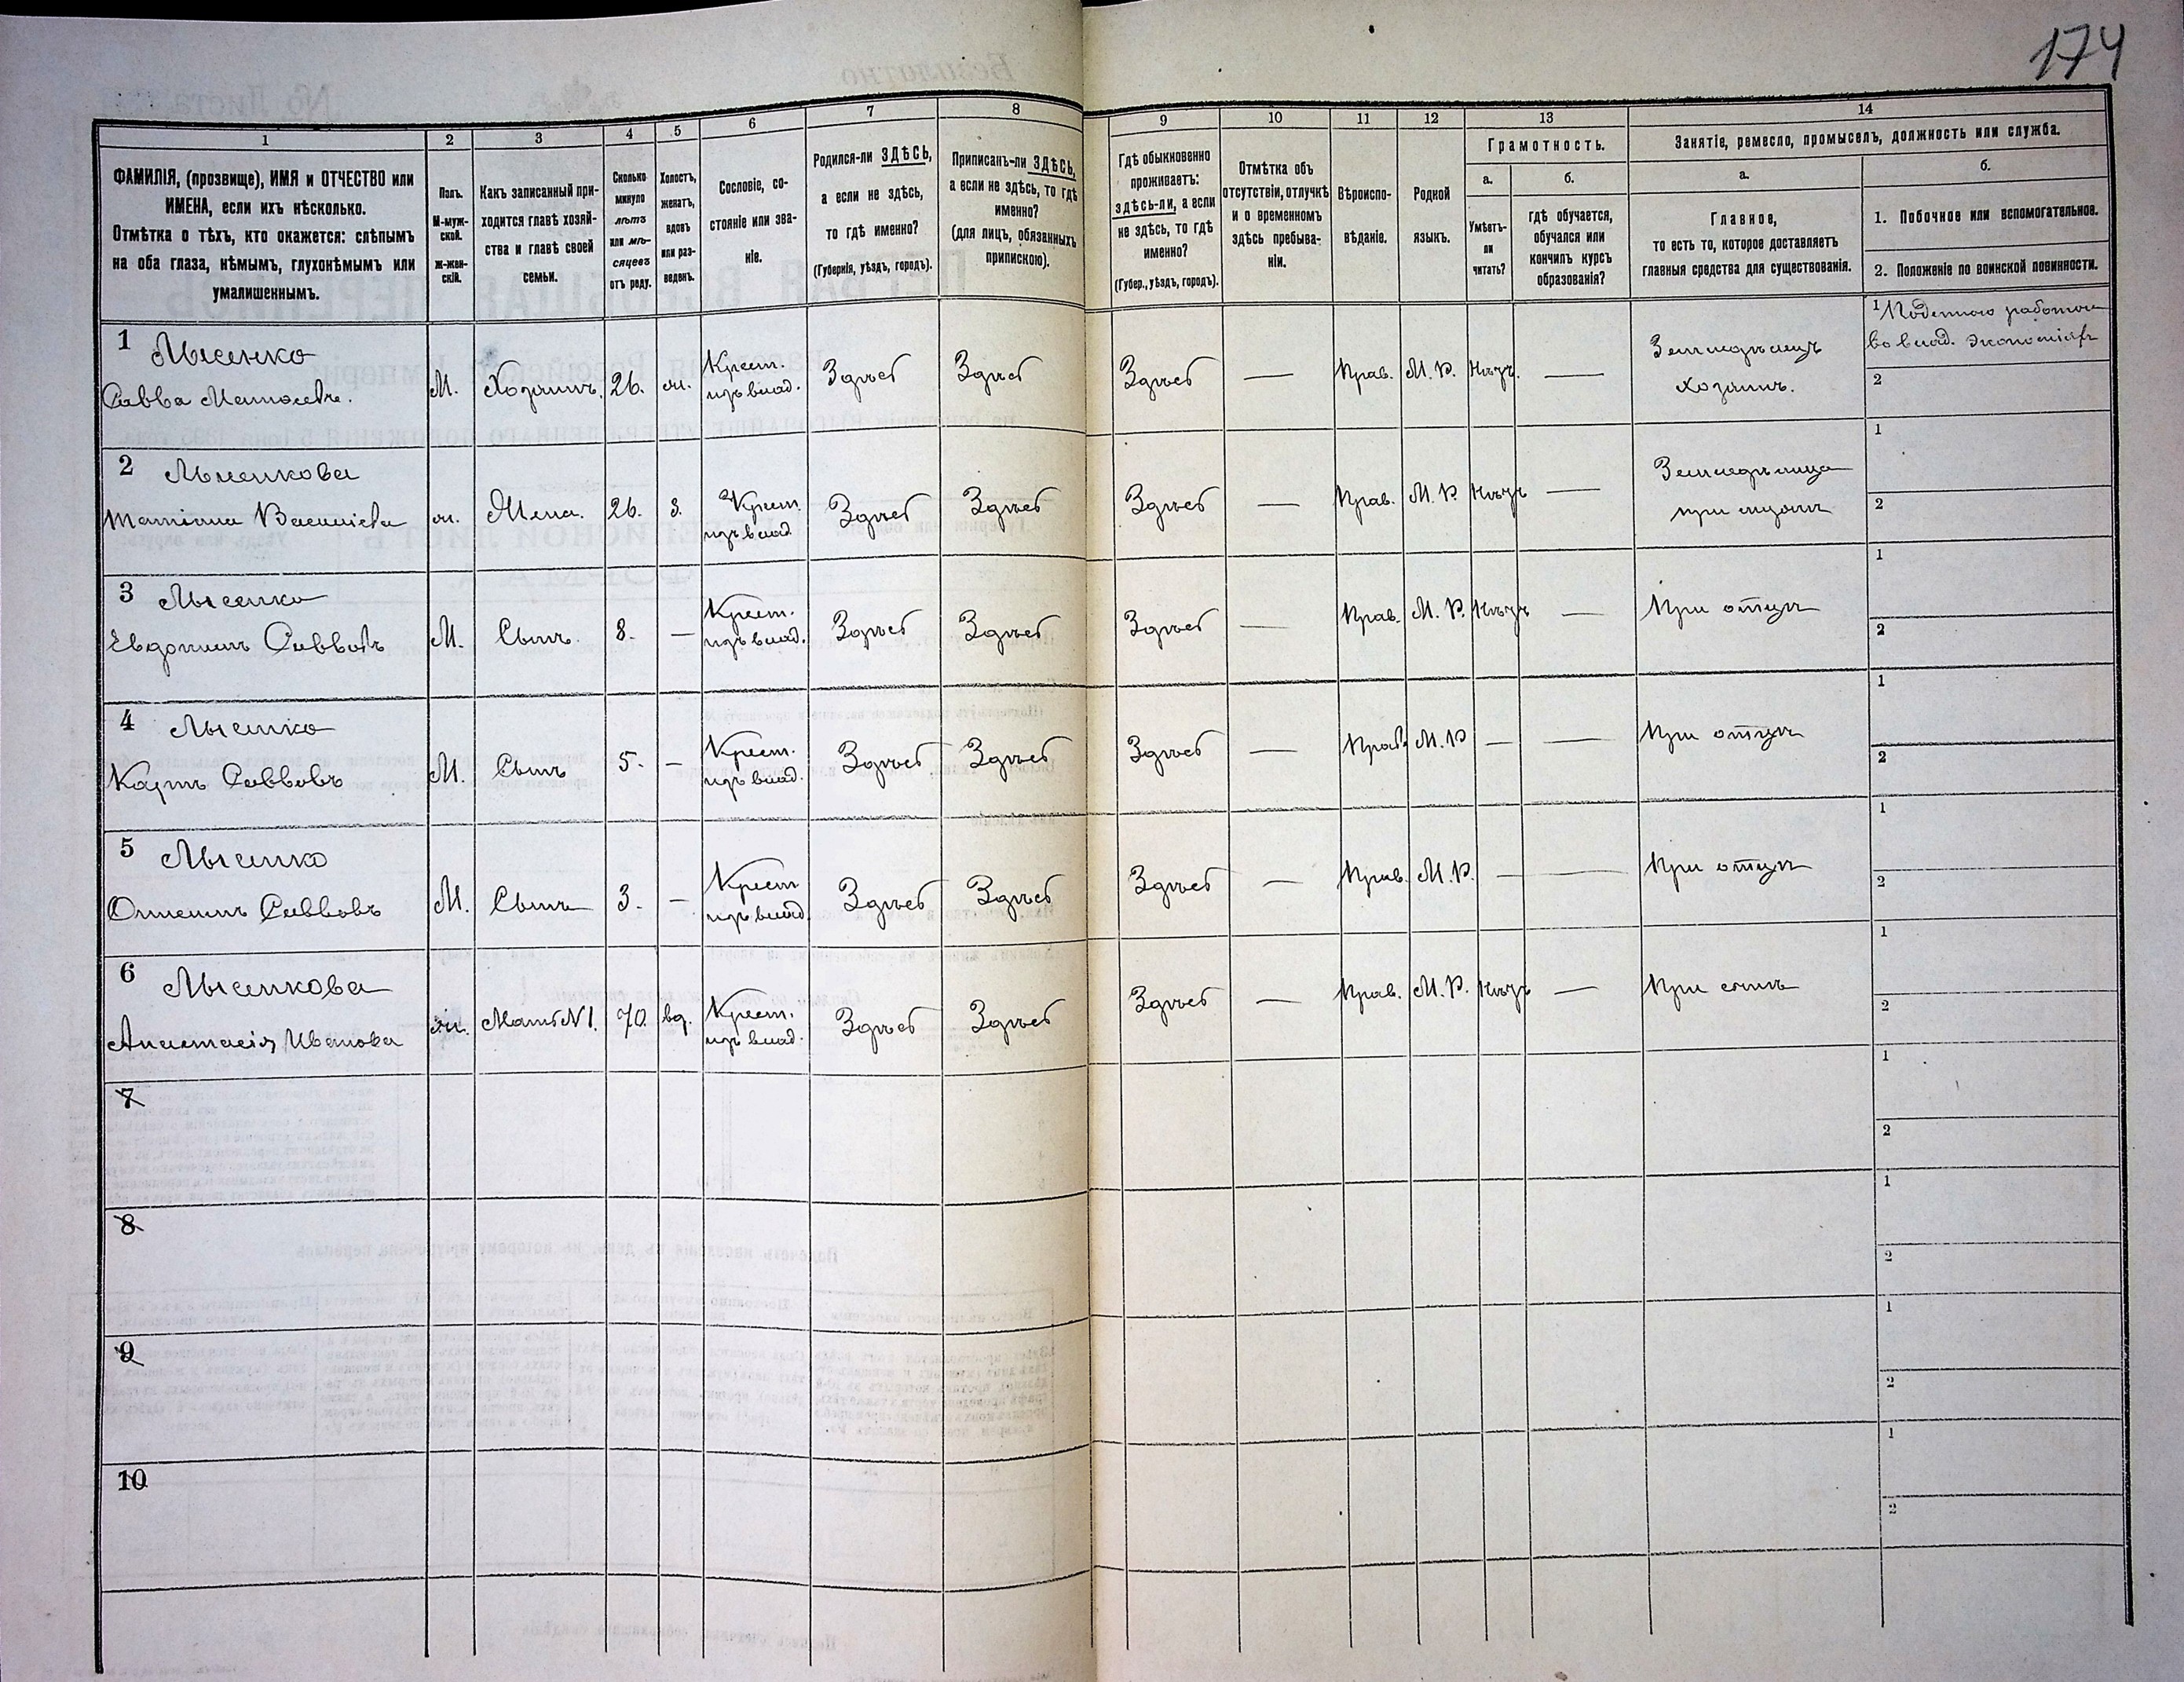 174
1 2 3 4 5 6 7 8 9 10 11 12 13 14
ФАМИЛІЯ, (прозвище), ИМЯ и ОТЧЕСТВО или
ИМЕНА, если ихъ нѣсколько.
Отмѣтка о тѣхъ, кто окажется: слѣпымъ
на оба глаза, нѣмымъ, глухонѣмымъ или
умалишеннымъ.
Полъ.
М-муж-
ской.
Ж-жен-
скій.
Какъ записанный при-
ходится главѣ хозяй-
ства и главѣ своей
семьи.
Сколько
минуло
лѣтъ
или мѣ-
сяцевъ
отъ роду.
Холостъ,
женатъ,
вдовъ
или раз-
веденъ.
Сословіе, со-
стояніе или зва-
ніе.
Родился-ли ЗДѢСЬ,
а если не здѣсь,
то гдѣ именно?
(Губернія, уѣздъ, городъ).
Приписанъ-ли ЗДѢСЬ,
а если не здѣсь, то гдѣ
именно?
(для лицъ, обязанныхъ
припискою).
Гдѣ обыкновенно
проживаетъ:
здѣсь-ли, а если
не здѣсь, то гдѣ
именно?
(Губер., уѣздъ, городъ).
Отмѣтка объ
отсутствіи, отлучкѣ
и о временномъ
здѣсь пребыва-
ніи.
Вѣроиспо-
вѣданіе.
Родной
языкъ.
Грамотность.
а.
Умѣетъ-
ли
читать?
б.
гдѣ обучается,
обучался или
кончилъ курсъ
образованія?
Занятіе, ремесло, промыселъ, должность или служба.
а.
Главное,
то есть то, которое доставляетъ
главныя средства для существованія.
б.
1. Побочное или вспомогательное.
2. Положеніе по воинской повинности.
1 Лысенко
Савва М. Хозяинъ. 26. ж. Крест. изъ влад. Здѣсь Здѣсь Здѣсь — Прав. М. Р. Нѣтъ. — Земледѣлецъ хозяинъ.
1 Поденною работою
во влад. экономіяхъ
2
2 Лысенкова
Татіана Василіева ж. Жена. 26. з. Крест. изъ влад. Здѣсь Здѣсь Здѣсь — Прав. М. Р. Нѣтъ — Земледѣлица при мужѣ
1
2
3 Лысенко
Евдокимъ Саввовъ М. Сынъ. 8. — Крест. изъ влад. Здѣсь Здѣсь Здѣсь — Прав. М. Р. Нѣтъ — При отцѣ
1
2
4 Лысенко
Карпъ Саввовъ М. Сынъ 5. — Крест. изъ влад. Здѣсь Здѣсь Здѣсь — Прав. М. Р — — При отцѣ
1
2
5 Лысенко
Саввовъ М. Сынъ 3. — Крест изъ влад. Здѣсь Здѣсь Здѣсь — Прав. М. Р. — — При отцѣ
1
2
6 Лысенкова
Анастасія Иванова ж. Мать N 1. 70. вд. Крест. изъ влад. Здѣсь Здѣсь Здѣсь — Прав. М. Р. Нѣтъ — При сынѣ
1
2
7
1
2
8
1
2
9
1
2
10
1
2